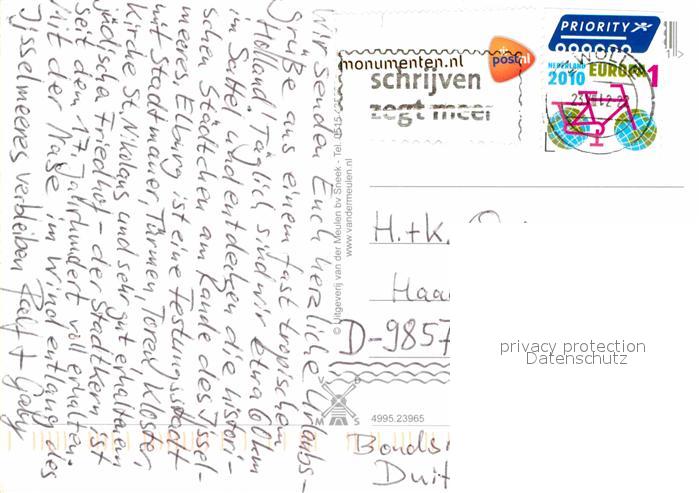 Wir senden Euch herzliche Urlaubs-
grüße aus einem fast tropischen
Holland. Täglich sind wir etwa 60km
im Sattel und entdecken die histori-
schen Städtchen am Rande des Ijssel-
meeres. Elburg ist eine Festungsstadt
mit Stadtmauer, Türmen, Toren, Kloster,
Kirche St. Nikolaus und sehr gut erhaltenem
jüdische Friedhof - der Stadtkern ist
seit dem 17. Jahrhundert voll erhalten.
Mit der Nase im Wind entlang des
Ijsselmeeres verbleiben Ralf + Gaby
© Uitgeverij van der Meulen bv Sneek - Tel. 0515
www.vandermeulen.nl
monumenten.nl
schrijven
zegt meer
postnl
PRIORITY
NEDERLAND
2010
EUROPA 1
H.+K.
Haa
D-9857
V D
M S
4995.23965
Bonds
Duit
privacy protection
Datenschutz